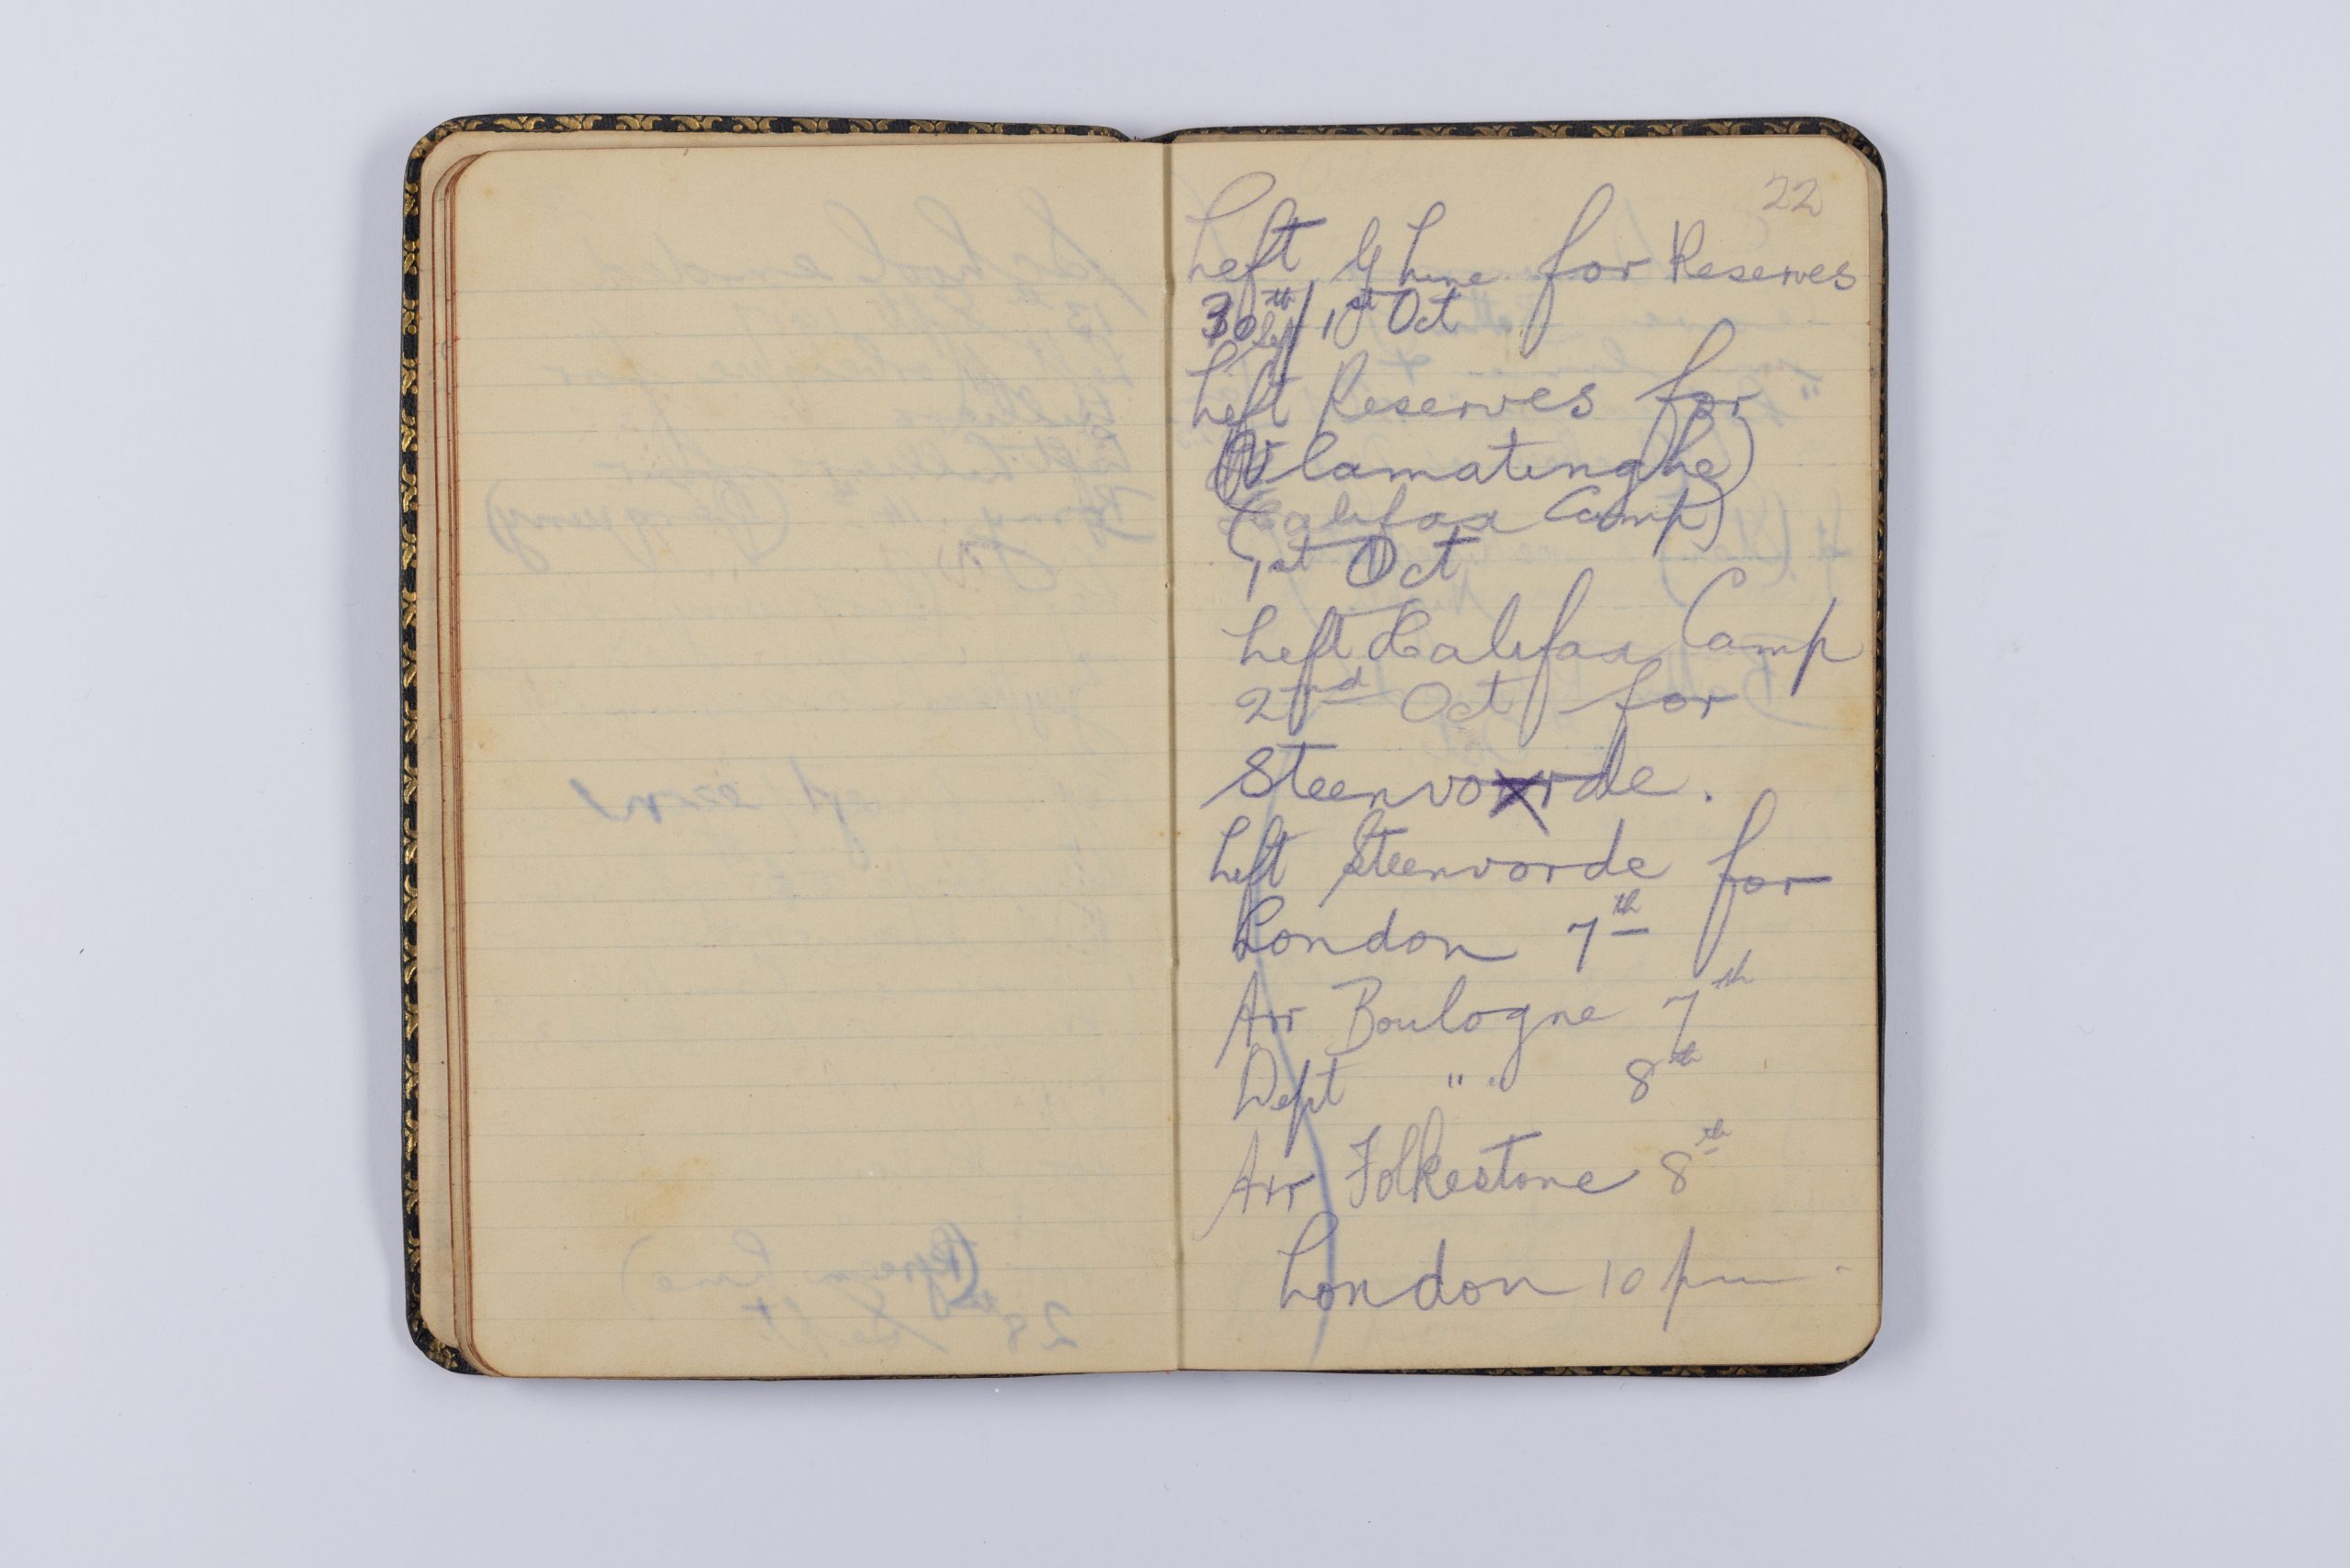 22
Left G Line for Reserves
30th Sep/1st Oct
Left Reserves for
(Vlamatinghe)
(Halifax Camp)
1st Oct
Left Halifax Camp
2nd Oct for
Steenvorde.
Left Steenvorde for
London 7th
Arr Boulogne 7th
Dept " " 8th
Arr Folkestone 8th
London 10 pm